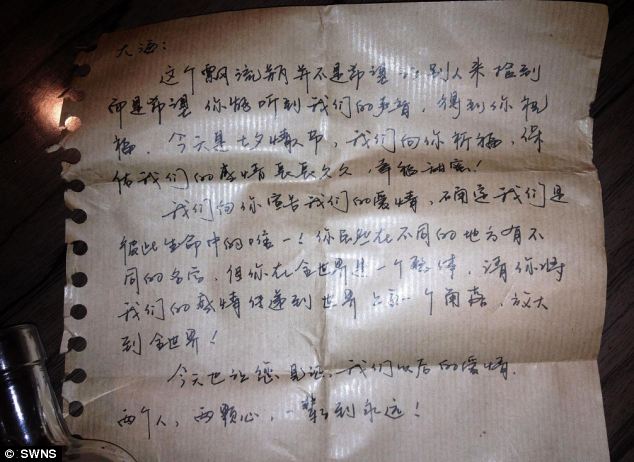 大海：
这个飘流瓶并不是希望让别人来捡到
而是希望你能听到我们的声音，得到你祝
福，今天是七夕情人节，我们向你祈福，保
佑我们的爱情长长久久，幸福甜蜜！
我们向你宣告我们的爱情，确定我们是
彼此生命中的唯一！你虽然在不同的地方有不
同的名字，但你在全世界是一个整体，请你将
我们的感情传递到世界上每一个角落，放大
到全世界！
今天也让您见证，我们以后的爱情，
两个人，两颗心，一辈子到永远！
© SWNS